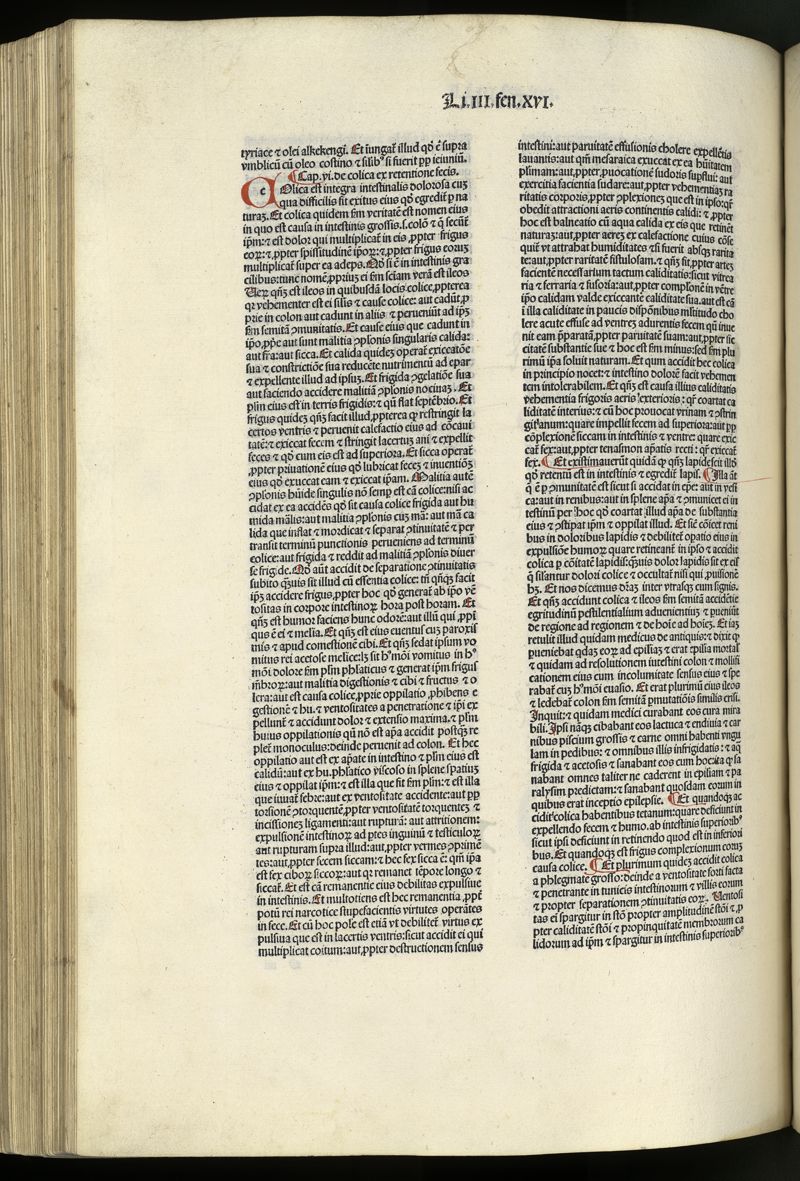 Li.III.fen.XVI.
tyriace ⁊ olei alkekengi. Et iũngat᷑ illud qđ ẽ supra
vmblicũ cũ oleo costino ⁊ silibꝰ si fuerit pp ieiuniũ.
¶ Cap.vi.de colica ex retentione fecis.
Colica est integra intestinalis dolorosa cuȝ
qua difficilis sit exitus eius qđ egredit᷑ p na
turaȝ. Et colica quidem fm veritatẽ est nomen eius
in quo est causa in intestinis grossis.s.colõ ⁊ q̃ secũt᷑
ip̃m:⁊ est dolor qui multiplicat᷑ in eis ꝓpter frigus
eoꝝ:⁊ ꝓpter spissitudinẽ ip̃oꝝ:⁊ ꝓpter frigus eoruȝ
multiplicat᷑ super ea adeps. Nõ si ẽ in intestinis gra
cilibus:tunc nomẽ ꝓpriuȝ ei fm sciam verã est ileos
Veꝝ qñȝ est ileos in quibusdã locis colice ꝓpterea
qꝛ vehementer est ei silis ⁊ cause colice: aut cadũt ꝓ
prie in colon aut cadunt in aliis ⁊ perueniũt ad ip̃ȝ
fm semitã ꝯmunitatis. Et cause eius que cadunt in
ip̃o ꝓp̃e aut sunt malitia ꝯplonis singularis calida:
aut fr̃a:aut sicca. Et calida quideȝ operat᷑ exiccatõe
sua ⁊ constrictiõe sua reducẽte nutrimentũ ad epar
⁊ expellente illud ad ipsuȝ. Et frigida ꝯgelatiõe sua
aut faciendo accidere malitiã ꝯplonis nociuaȝ. Et
plm̃ eius est in terris frigidis:⁊ qñ flat septẽtrio. Et
frigus quideȝ qñȝ facit illud ꝓpterea ꝙ restringit la
certos ventris ⁊ peruenit calefactio eius ad cõcaui
tatẽ:⁊ exiccat fecem ⁊ stringit lacertuȝ ani ⁊ expellit
feces ⁊ qđ cum eis est ad superiora. Et sicca operat᷑
ꝓpter priuationẽ eius qđ lubricat feceȝ ⁊ inuentiõȝ
eius qđ exuccat eam ⁊ exiccat ip̃am. Malitia autẽ
ꝯplonis hũide singulis nõ semp est cã colice:nisi ac
cidat ex ea accidẽs qđ sit causa colice frigida aut hu
mida mãlis:aut malitia ꝯplonis cuȝ mã: aut mã ca
lida que inflat ⁊ mordicat ⁊ separat ꝯtinuitatẽ ⁊ per
transit terminũ punctionis perueniens ad terminũ
colice:aut frigida ⁊ reddit ad malitiã ꝯplonis diuer
se frigide. Nõ aũt accidit de separatione ꝯtinuitatis
subito q̃ȝuis sit illud cũ essentia colice: tñ qñqȝ facit
ip̃ȝ accidere frigus ꝓpter hoc qđ generat᷑ ab ip̃o vẽ
tositas in corpore intestinoꝝ hora post horam. Et
qñȝ est humor faciens hunc odorẽ:aut illũ qui ꝓpi
quꝰ ẽ ei ⁊ melia. Et qñȝ est eius euentus cuȝ paroxis
mis ⁊ apud comestionẽ cibi. Et qñȝ sedat ipsum vo
mitus rei acetose melice:lȝ sit hꝰmõi vomitus in hꝰ
mõi dolore fm plm phlaticus ⁊ generat ip̃m frigus
mẽbroꝝ:aut malitia digestionis ⁊ cibi ⁊ fructus ⁊ o
lera:aut est causa colice ꝓprie oppilatio ꝓhibens e
gestionẽ ⁊ hu. ⁊ ventositates a penetratione ⁊ ip̃i ex
pellunt᷑ ⁊ accidunt dolor ⁊ extensio maxima. ⁊ plm̃
huius oppilationis qñ nõ est ap̃a accidit postq̃ȝ re
plet᷑ monoculus:deinde peruenit ad colon. Et hec
oppilatio aut est ex ap̃ate in intestino ⁊ plm̃ eius est
calidũ:aut ex hu.phlatico viscoso in splene spatiuȝ
eius ⁊ oppilat ip̃m:⁊ est illa que fit fm plm̃:⁊ est illa
que iuuat᷑ febre:aut ex vẽtositate accidente:aut pp
torsionẽ ꝯtorquentẽ ꝓpter ventositatẽ torquenteȝ ⁊
incissioneȝ ligamenti:aut rupturã: aut attritionem:
expulsionẽ intestinoꝝ ad ptes inguinũ ⁊ testiculoꝝ
aut rupturam supra illud:aut ꝓpter vermes ꝯprimẽ
tes:aut ꝓpter fecem siccam:⁊ hec fex sicca ẽ: qm̃ ip̃a
est fex ciboꝝ siccoꝝ:aut qꝛ remanet tẽpore longo ⁊
siccat᷑. Et est cã remanentie eius debilitas expulsiue
in intestinis. Et multotiens est hec remanentia ꝓpt᷑
potũ rei narcotice stupefacientis virtutes operãtes
in fece. Et cũ hoc pole est etiã vt debilitet᷑ virtus ex
pulsiua que est in lacertis ventris:sicut accidit ei qui
multiplicat coitum:aut ꝓpter destructionem sensus
intestini:aut paruitatẽ effusionis cholere expellẽtis
lauantis:aut qm̃ mesaraica exuccat ex ea hũitatem
plimam:aut ꝓpter ꝓuocationẽ sudoris supflui: aut
exercitia facientia sudare:aut ꝓpter vehementiaȝ ra
ritatis corporis ꝓpter ꝯplexioneȝ que est in ipso:qꝛ
obedit attractioni aeris continentis calidi: ⁊ ꝓpter
hoc est balneatio cũ aqua calida ex eis que retinẽt
naturaȝ:aut ꝓpter aereȝ ex calefactione cuius cõse
quit᷑ vt attrahat humiditates ⁊ si fuerit absqȝ rarita
te:aut ꝓpter raritatẽ fistulosam.⁊ qñȝ fit ꝓpter arteȝ
facientẽ necessarium tactum caliditatis:sicut vitrea
ria ⁊ ferraria ⁊ fusoria:aut ꝓpter complonẽ in vẽtre
ip̃o calidam valde exiccantẽ caliditate sua.aut est cã
ĩ illa caliditate in paucis disp̃onibus mltitudo cho
lere acute effuse ad ventreȝ adurentis fecem qñ inue
nit eam p̃paratã ꝓpter paruitatẽ suam:aut ꝓpter sic
citatẽ substantie sue ⁊ hoc est fm minus:sed fm plu
rimũ ip̃a soluit naturam. Et qum accidit hec colica
in principio nocet:⁊ intestino dolorẽ facit vehemen
tem intolerabilem. Et qñȝ est causa illius caliditatis
vehementia frigoris aeris exterioris: qꝛ coartat ca
liditatẽ interius:⁊ cũ hoc prouocat vrinam ⁊ ꝯstrin
git anum:quare impellit fecem ad superiora:aut pp
cõplexionẽ siccam in intestinis ⁊ ventre: quare exic
cat᷑ fex:aut ꝓpter tenasmon ap̃atis recti: qꝛ exiccat᷑
fex. ¶ Et existimauerũt quidã ꝙ qñȝ lapidescit illđ
qđ retentũ est in intestinis ⁊ egredit᷑ lapis. ¶ Illa aũt
q̃ ẽ p ꝯmunitatẽ est sicut si accidat in epẽ: aut in vesi
ca:aut in renibus:aut in splene ap̃a ⁊ ꝯmunicet ei in
testinũ per hoc qđ coartat᷑ illud ap̃a de substantia
eius ⁊ ꝯstipat ip̃m ⁊ oppilat illud. Et siẽ cõicet reni
bus in doloribus lapidis ⁊ debilitet᷑ opatio eius in
expulsiõe humoꝝ quare retineant᷑ in ipso ⁊ accidit
colica p cõitatẽ lapidis:q̃ȝuis dolor lapidis sit ex eis
q̃ silantur dolori colice ⁊ occultat᷑ nisi qui ꝓuisionẽ
hȝ. Et nos dicemus dr̃aȝ inter vtrasqȝ cum signis.
Et qñȝ accidunt colica ⁊ ileos fm semitã accidẽtie
egritudinũ pestilentialium aduenientiuȝ ⁊ pueniũt
de regione ad regionem ⁊ de hoĩe ad hoĩeȝ. Et iaȝ
retulit illud quidam medicus de antiquis:⁊ dixit ꝙ
pueniebat qđaȝ eoꝝ ad epĩliaȝ ⁊ erat epĩlia mortal᷑
⁊ quidam ad resolutionem intestini colon ⁊ mollifi
cationem eius cum incolumitate sensus eius ⁊ spe
rabat᷑ cuȝ hꝰmõi euasio. Et erat plurimũ eius ileos
⁊ ledebat᷑ colon fm semitã pmutatiõis similis crisi.
Inquit:⁊ quidam medici curabant eos cura mira
bili. Ipsi nãqȝ cibabant eos lactuca ⁊ endiuia ⁊ car
nibus piscium grossis ⁊ carne omni habenti vngu
lam in pedibus: ⁊ omnibus illis infrigidatis: ⁊ aq̃
frigida ⁊ acetosis ⁊ sanabant eos cum hoc:ita ꝙ sa
nabant omnes taliter ne caderent in epĩliam ⁊ pa
ralysim predictam:⁊ sanabant quosdam eorum in
quibus erat inceptio epilepsie. ¶ Et quandoqȝ ac
cidit colica habentibus tetanum:quare deficiunt in
expellendo fecem ⁊ humo.ab intestinis superioribꝰ
sicut ipsi deficiunt in retinendo quod est in inferiori
bus. Et quandoqȝ est frigus complexionum eorum
causa colice. ¶ Et plurimum quideȝ accidit colica
a phlegmate grosso:deinde a ventositate forti facta
⁊ penetrante in tunicis intestinorum ⁊ villis eorum
⁊ propter separationem ꝯtinuitatis eoꝝ. Ventosi
tas ei spargitur in stõ propter amplitudinẽ stõi ⁊ ꝓ
pter caliditatẽ stõi ⁊ propinquitatẽ membrorum ca
lidorum ad ip̃m ⁊ spargitur in intestinis superioribꝰ